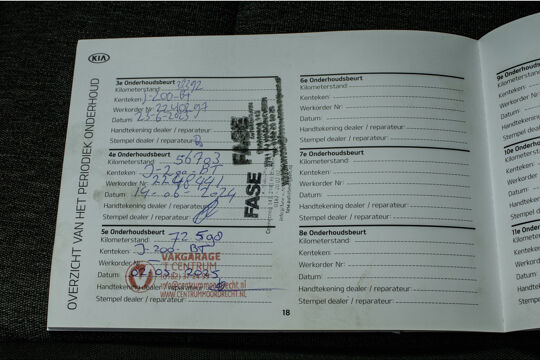 KIA
OVERZICHT VAN HET PERIODIEK ONDERHOUD
3e Onderhoudsbeurt
Kilometerstand:
Kenteken: J-200-BT
Werkorder Nr: 22408297
Datum: 23-6-2023
Handtekening dealer / reparateur:
Stempel dealer / reparateur:
FASE FASE
4e Onderhoudsbeurt
Kilometerstand: 56703
Kenteken: J-200-BT
Werkorder Nr:
Datum: 14-06-2024
Handtekening dealer / reparateur:
Stempel dealer / reparateur:
5e Onderhoudsbeurt
Kilometerstand: 72590
Kenteken: J-200-BT
Werkorder Nr:
Datum:
Handtekening dealer / reparateur:
Stempel dealer / reparateur:
VAKGARAGE
T CENTRUM
WWW.CENTRUMMOORDRECHT.NL
6e Onderhoudsbeurt
Kilometerstand:
Kenteken:
Werkorder Nr:
Datum:
Handtekening dealer / reparateur:
Stempel dealer / reparateur:
7e Onderhoudsbeurt
Kilometerstand:
Kenteken:
Werkorder Nr:
Datum:
Handtekening dealer / reparateur:
Stempel dealer / reparateur:
8e Onderhoudsbeurt
Kilometerstand:
Kenteken:
Werkorder Nr:
Datum:
Handtekening dealer / reparateur:
Stempel dealer / reparateur:
18
9e Onderh
Kilometers
Kenteken:
Werkorder
Datum:
Handteken
Stempel de
10e Onderh
Kilometer
Kenteken:
Werkorde
Datum:
Handteke
Stempel d
11e Onde
Kilomete
Kenteken
Werkord
Datum:
Handtek
Stempel